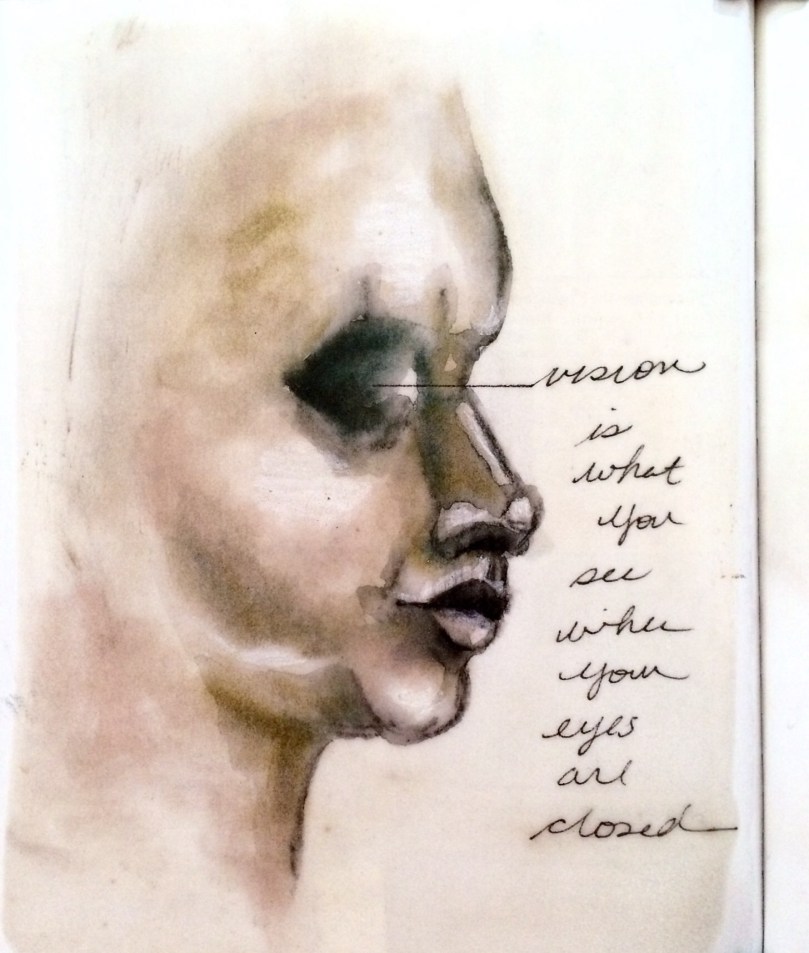 vision
is
what
you
see
when
your
eyes
are
closed